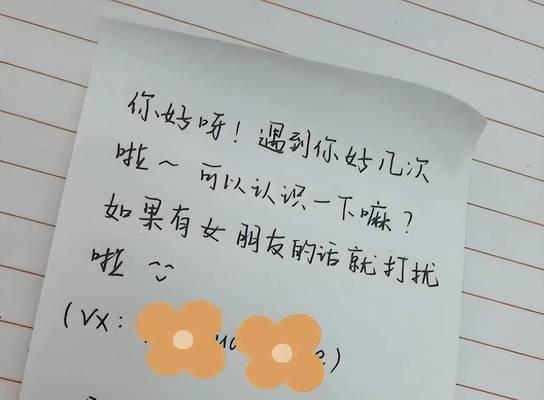 你好呀！遇到你好几次
啦～可以认识一下嘛？
如果有女朋友的话就打扰
啦
(VX: